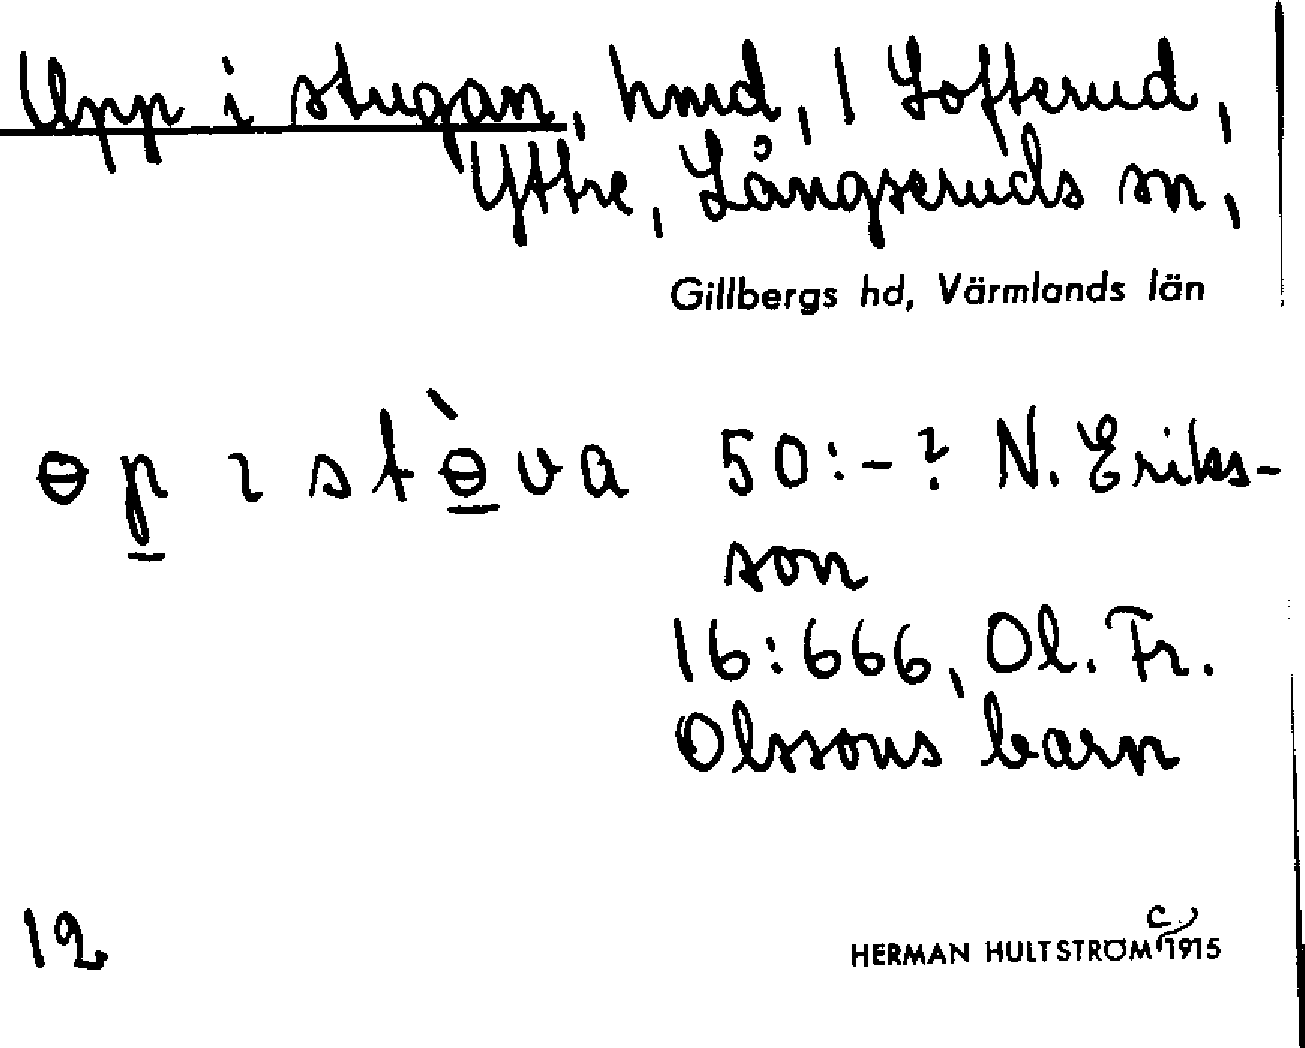 Upp i stugan, hmd, 1 Lofterud,
Yttre, Långseruds sn,
Gillbergs hd, Värmlands län
ɵp ɩ stɵ̀va 50:-? N. Eriks-
son
16:666, Ol. Fr.
Olssons barn
12 HERMAN HULTSTRÖM c 1915